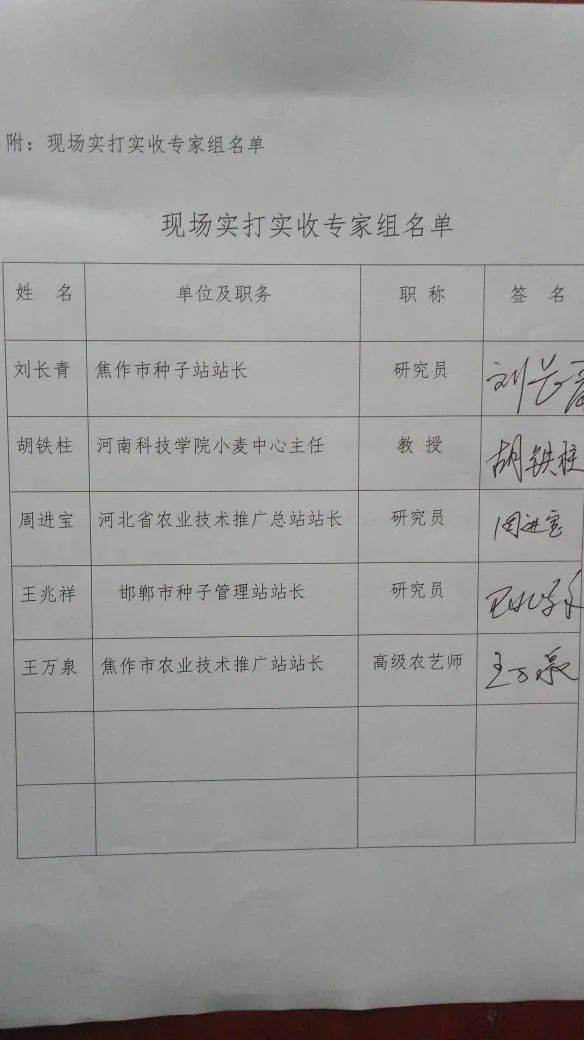 附：现场实打实收专家组名单
现场实打实收专家组名单
姓 名 单位及职务 职 称 签 名
刘长青 焦作市种子站站长 研究员 刘长青
胡铁柱 河南科技学院小麦中心主任 教 授 胡铁柱
周进宝 河北省农业技术推广总站站长 研究员 周进宝
王兆祥 邯郸市种子管理站站长 研究员 王兆祥
王万泉 焦作市农业技术推广站站长 高级农艺师 王万泉